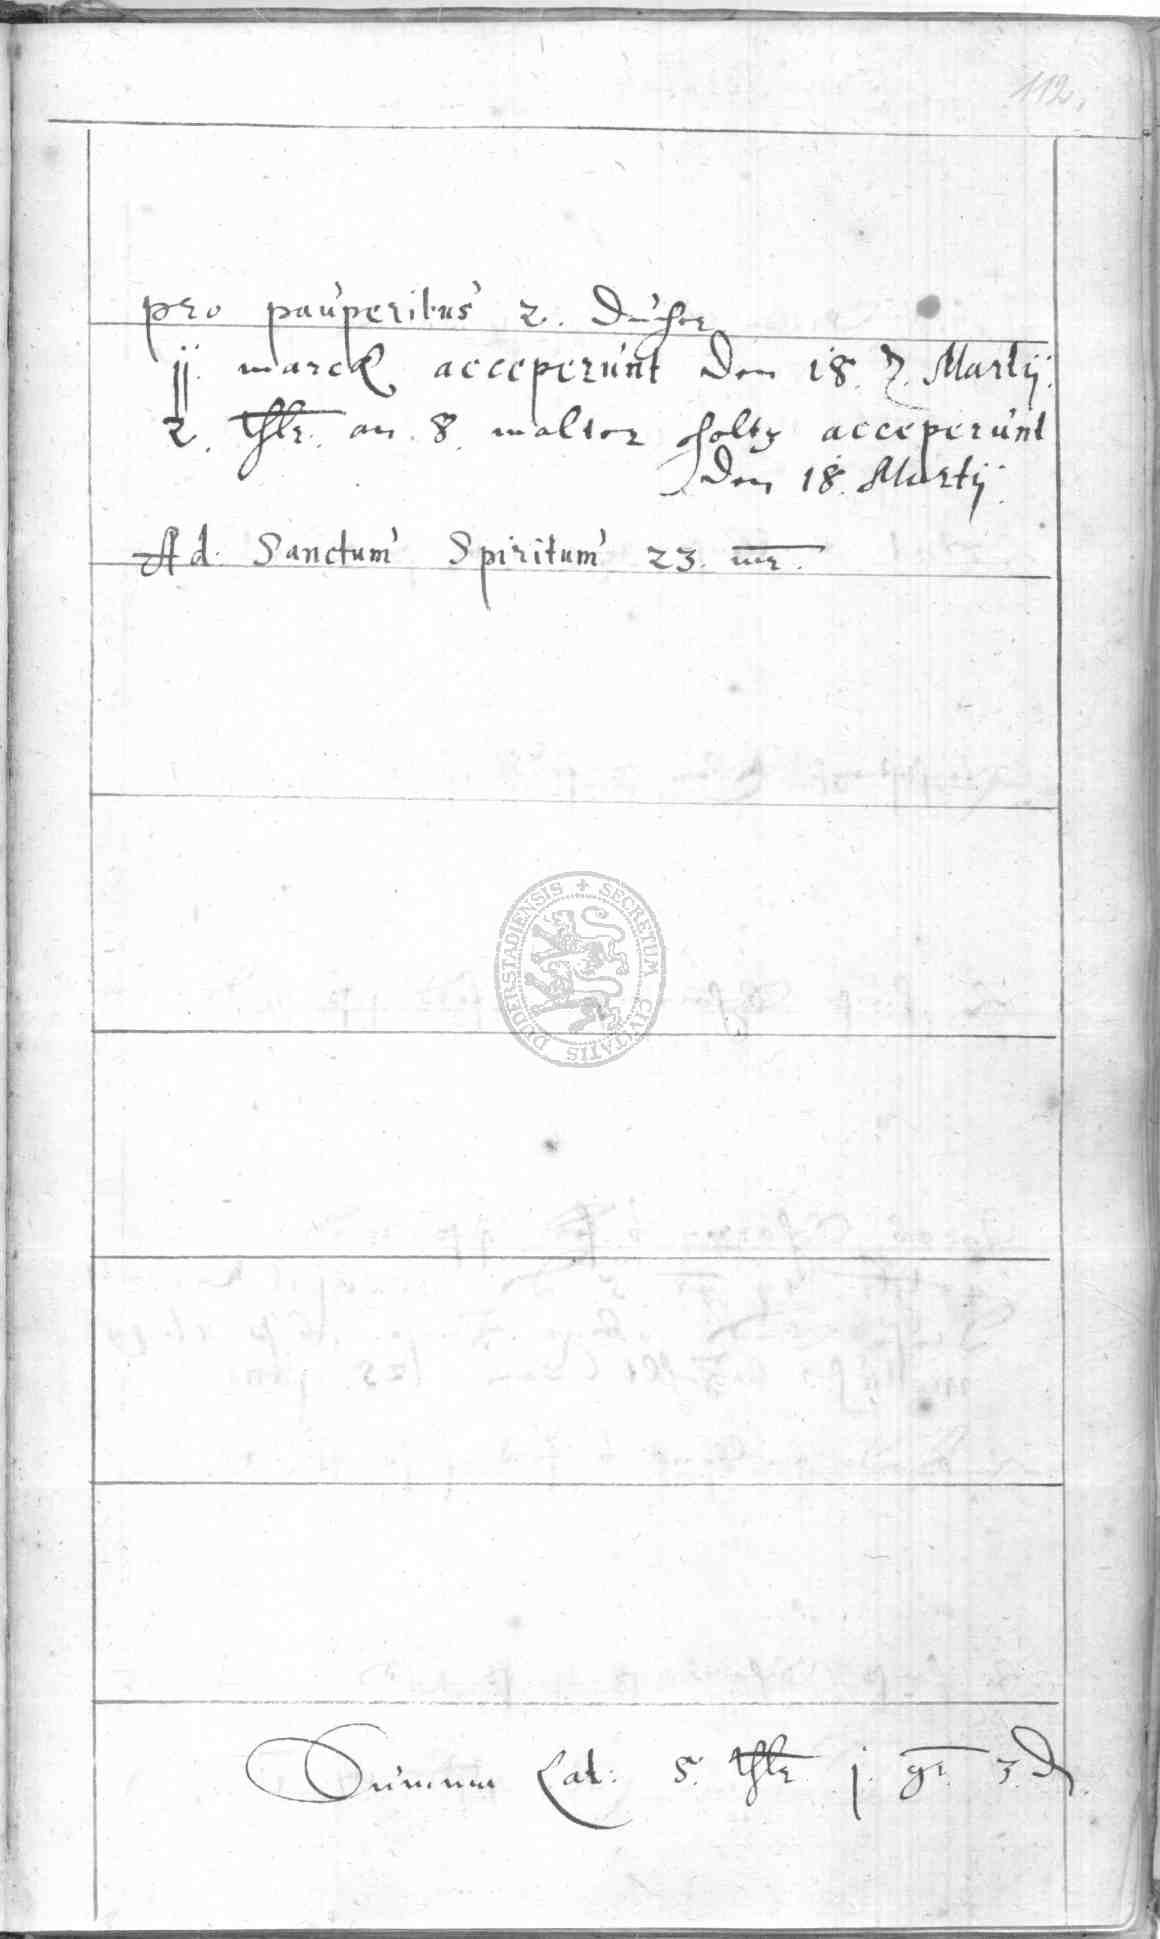 112.
pro pauperibus 2. Dücher
jj. marck acceperunt den 18. Martij.
2. thlr. an. 8. malter holtz acceperunt
den 18. Martij
Ad. Sanctum Spiritum 23. mr.
SECRETUM CIVITATIS DUDERSTADIENSIS
Summa Lat: 5. thlr. j. gr. 3. d